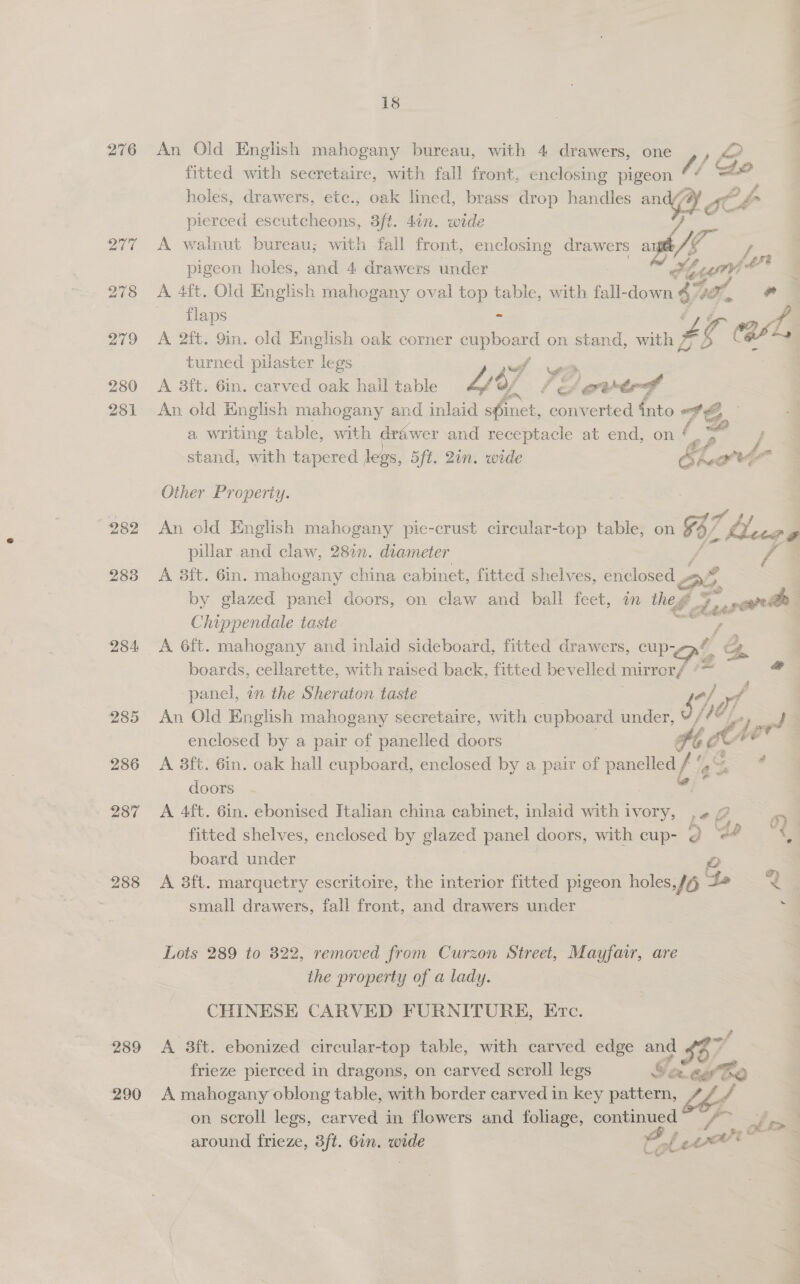 18
276 An Old English mahogany bureau, with 4 drawers, one
fitted with secretaire, with fall front, enclosing pigeon
holes, drawers, etc., oak lined, brass drop handles and
pierced escutcheons, 3ft. 4in. wide
277 A walnut bureau; with fall front, enclosing drawers and
pigeon holes, and 4 drawers under
278 A 4ft. Old English mahogany oval top table, with fall-down
flaps
279 A 2ft. 9in. old English oak corner cupboard on stand, with
turned pilaster legs
280 A 3ft. 6in. carved oak hall table
281 An old English mahogany and inlaid spinet, converted into
a writing table, with drawer and receptacle at end, on
stand, with tapered legs, 5ft. 2in. wide
Other Property.
282 An old English mahogany pie-crust circular-top table, on
pillar and claw, 28in. diameter
283 A 3ft. 6in. mahogany china cabinet, fitted shelves, enclosed
by glazed panel doors, on claw and ball feet, in the
Chippendale taste
284 A 6ft. mahogany and inlaid sideboard, fitted drawers, cup-
boards, cellarette, with raised back, fitted bevelled mirror
panel, in the Sheraton taste
285 An Old English mahogany secretaire, with cupboard under,
enclosed by a pair of panelled doors
286 A 3ft. 6in. oak hall cupboard, enclosed by a pair of panelled
doors
287 A 4ft. 6in. ebonised Italian china cabinet, inlaid with ivory,
fitted shelves, enclosed by glazed panel doors, with cup-
board under
288 A 3ft. marquetry escritoire, the interior fitted pigeon holes,
small drawers, fall front, and drawers under
Lots 289 to 322, removed from Curzon Street, Mayfair, are
the property of a lady.
CHINESE CARVED FURNITURE, ETC.
289 A 3ft. ebonized circular-top table, with carved edge and
frieze pierced in dragons, on carved scroll legs
290 A mahogany oblong table, with border carved in key pattern,
on scroll legs, carved in flowers and foliage, continued
around frieze, 3ft. 6in. wide